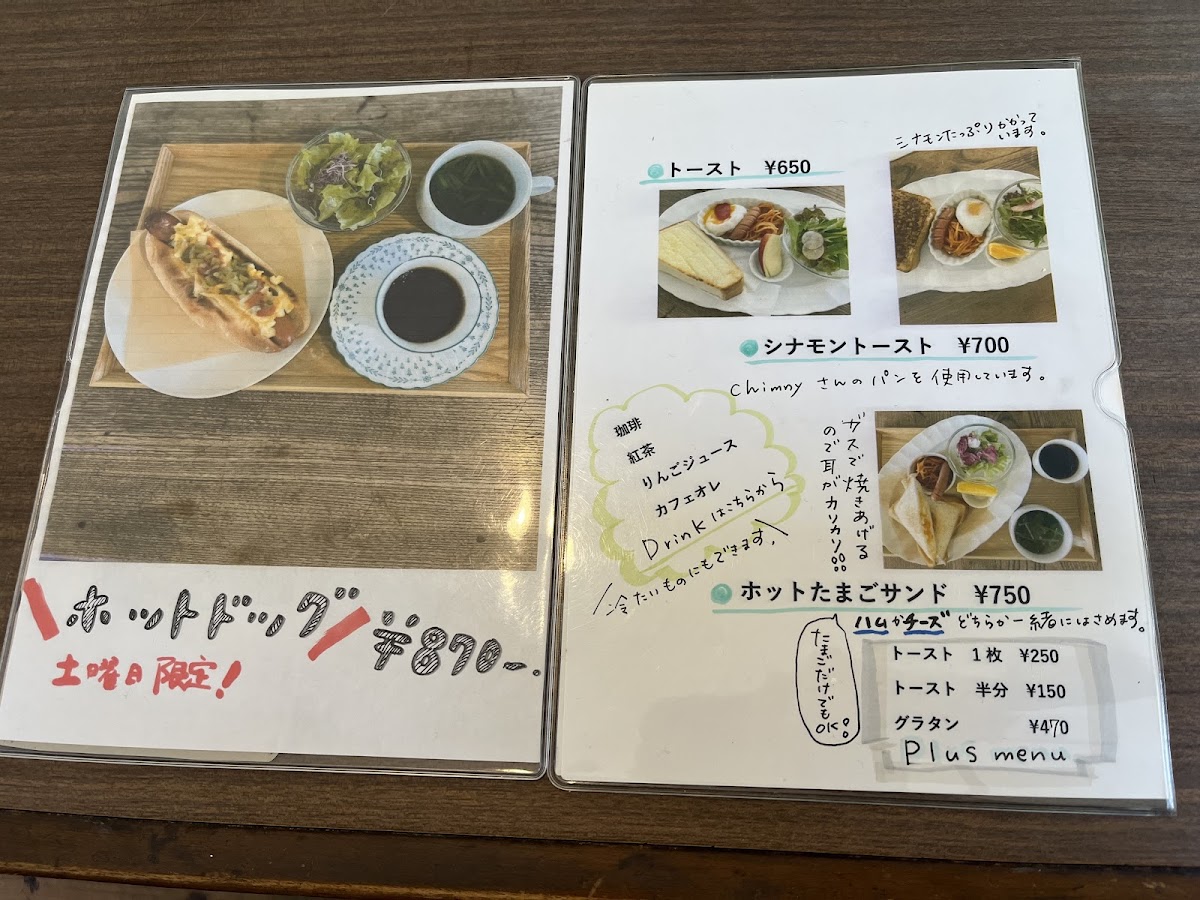 ホットドッグ ¥870-.
土曜日限定!
シナモンたっぷりかかって
います。
トースト ¥650
シナモントースト ¥700
Chimny さんのパンを使用しています。
珈琲
紅茶
りんごジュース
カフェオレ
Drinkはこちらから
冷たいものにもできます。
ガスで焼きあげる
ので耳がカリカリ!!
ホットたまごサンド ¥750
ハムかチーズどちらか一緒にはさめます。
たまごだけでも
OK!
トースト 1枚 ¥250
トースト 半分 ¥150
グラタン ¥470
Plus menu